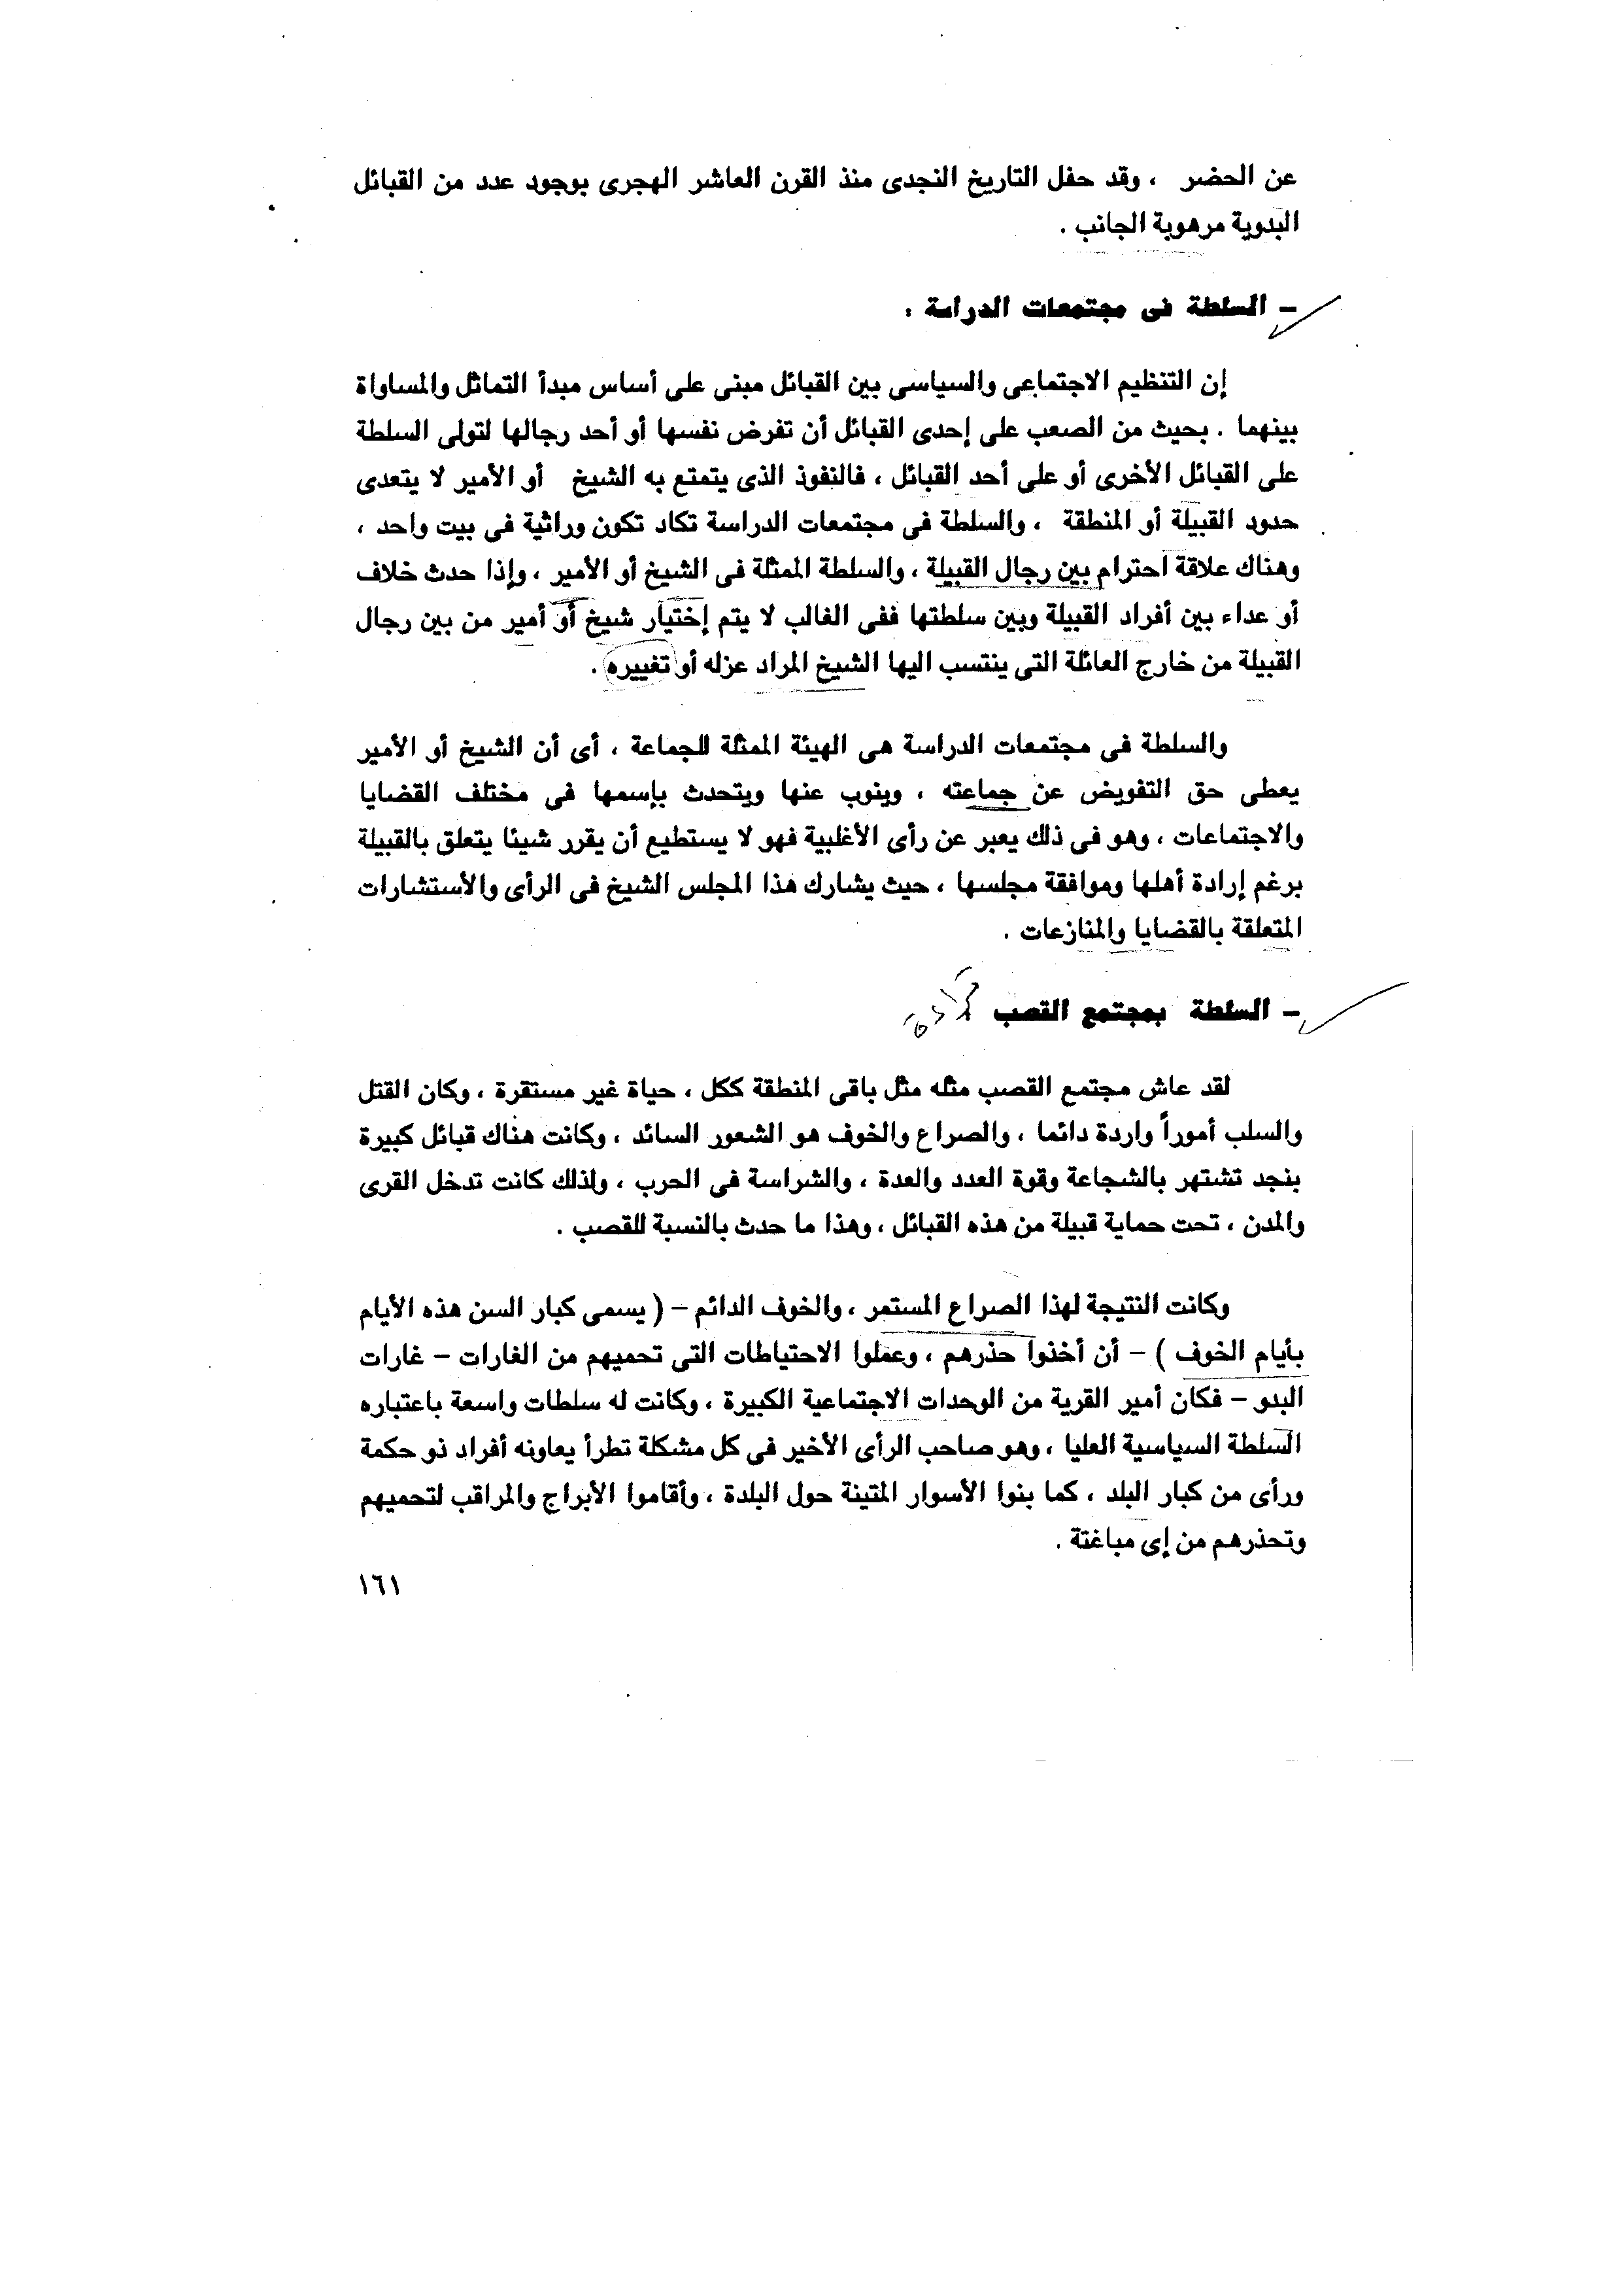 عن الحضر ، وقد حفل التاريخ النجدى منذ القرن العاشر الهجرى بوجود عدد من القبائل
البدوية مرهوبة الجانب .
– السلطة فى مجتمعات الدراسة :
إن التنظيم الاجتماعى والسياسى بين القبائل مبنى على أساس مبدأ التماثل والمساواة
بينهما . بحيث من الصعب على إحدى القبائل أن تفرض نفسها أو أحد رجالها لتولى السلطة
على القبائل الأخرى أو على أحد القبائل ، فالنفوذ الذى يتمتع به الشيخ أو الأمير لا يتعدى
حدود القبيلة أو المنطقة ، والسلطة فى مجتمعات الدراسة تكاد تكون وراثية فى بيت واحد ،
وهناك علاقة احترام بين رجال القبيلة ، والسلطة الممثلة فى الشيخ أو الأمير ، وإذا حدث خلاف
أو عداء بين أفراد القبيلة وبين سلطتها ففى الغالب لا يتم إختيار شيخ أو أمير من بين رجال
القبيلة من خارج العائلة التى ينتسب اليها الشيخ المراد عزله أو تغييره .
والسلطة فى مجتمعات الدراسة هى الهيئة الممثلة للجماعة ، أى أن الشيخ أو الأمير
يعطى حق التفويض عن جماعته ، وينوب عنها ويتحدث بإسمها فى مختلف القضايا
والاجتماعات ، وهو فى ذلك يعبر عن رأى الأغلبية فهو لا يستطيع أن يقرر شيئا يتعلق بالقبيلة
برغم إرادة أهلها وموافقة مجلسها ، حيث يشارك هذا المجلس الشيخ فى الرأى والأستشارات
المتعلقة بالقضايا والمنازعات .
– السلطة بمجتمع القصب
لقد عاش مجتمع القصب مثله مثل باقى المنطقة ككل ، حياة غير مستقرة ، وكان القتل
والسلب أموراً واردة دائما ، والصراع والخوف هو الشعور السائد ، وكانت هناك قبائل كبيرة
بنجد تشتهر بالشجاعة وقوة العدد والعدة ، والشراسة فى الحرب ، ولذلك كانت تدخل القرى
والمدن ، تحت حماية قبيلة من هذه القبائل ، وهذا ما حدث بالنسبة للقصب .
وكانت النتيجة لهذا الصراع المستمر ، والخوف الدائم – ( يسمى كبار السن هذه الأيام
بأيام الخوف ) – أن أخذوا حذرهم ، وعملوا الاحتياطات التى تحميهم من الغارات – غارات
البدو – فكان أمير القرية من الوحدات الاجتماعية الكبيرة ، وكانت له سلطات واسعة باعتباره
السلطة السياسية العليا ، وهو صاحب الرأى الأخير فى كل مشكلة تطرأ يعاونه أفراد ذو حكمة
ورأى من كبار البلد ، كما بنوا الأسوار المتينة حول البلدة ، وأقاموا الأبراج والمراقب لتحميهم
وتحذرهم من إى مباغتة .
١٦١